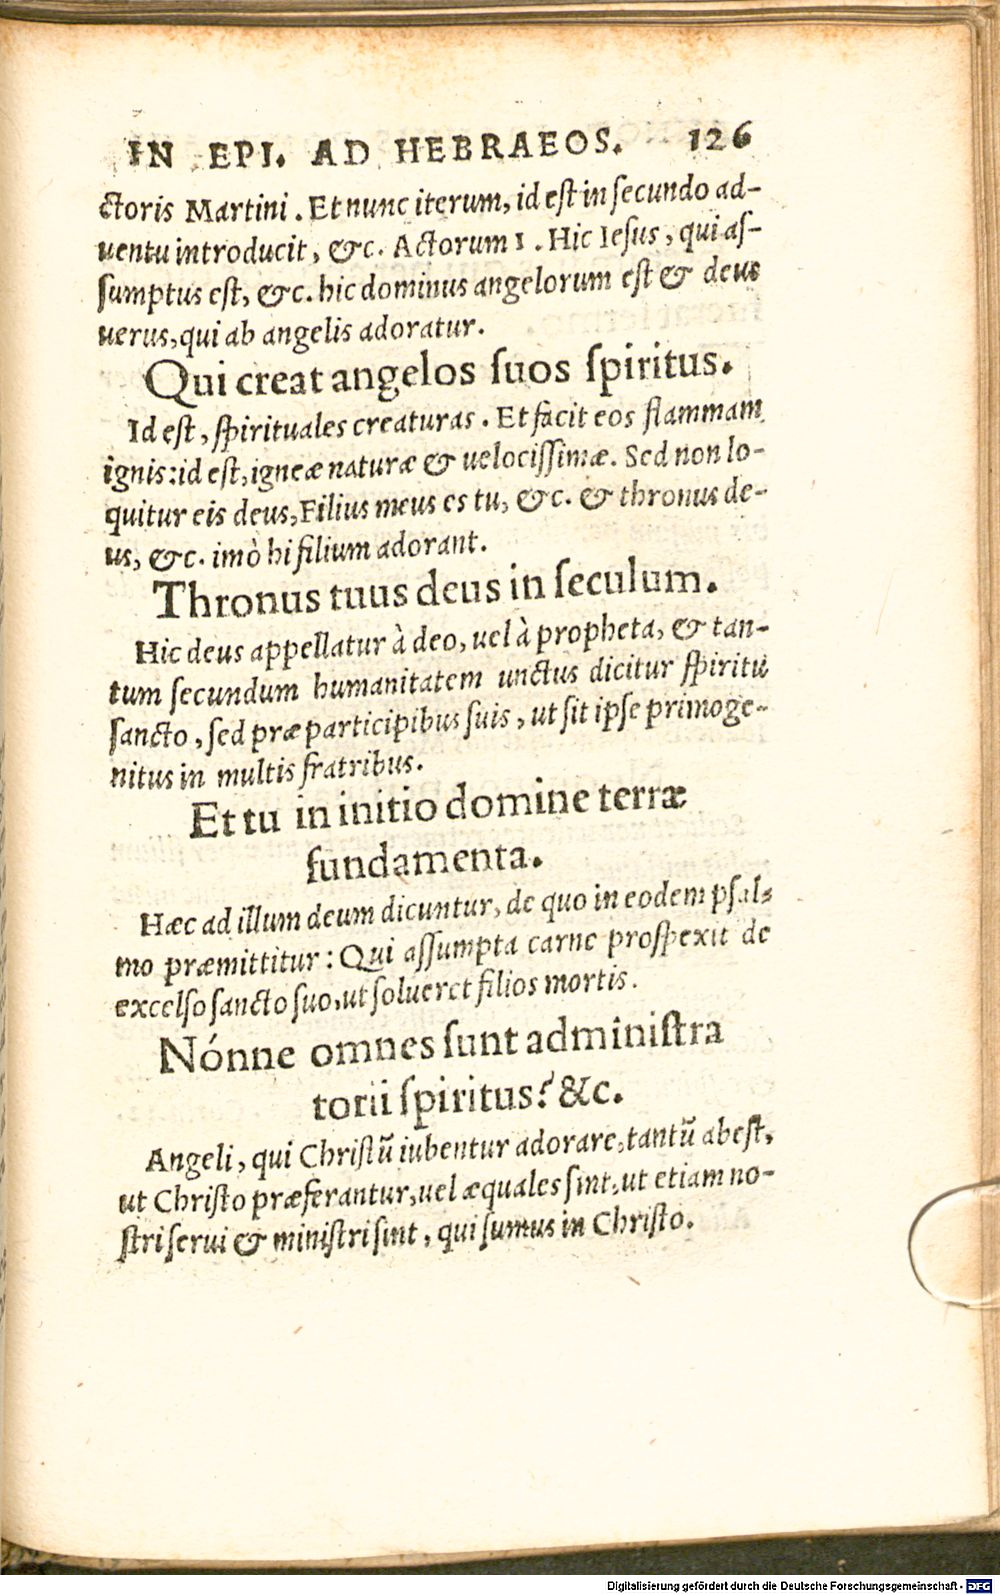 IN EPI. AD HEBRAEOS. 126
ctoris Martini. Et nunc iterum, id est in secundo ad-
uentu introducit, &c. Actorum 1. Hic Iesus, qui as-
sumptus est, &c. hic dominus angelorum est & deus
uerus, qui ab angelis adoratur.
Qui creat angelos suos spiritus.
Id est, spirituales creaturas. Et facit eos flammam
ignis: id est, igneæ naturæ & uelocissimæ. Sed non lo-
quitur eis deus, Filius meus es tu, &c. & thronus de-
us, &c. imò hi filium adorant.
Thronus tuus deus in seculum.
Hic deus appellatur à deo, uel à propheta, & tan-
tum secundum humanitatem unctus dicitur spiritu
sancto, sed præ participibus suis, ut sit ipse primoge-
nitus in multis fratribus.
Et tu in initio domine terræ
fundamenta.
Hæc ad illum deum dicuntur, de quo in eodem psal-
mo præmittitur: Qui assumpta carne prospexit de
excelso sancto suo, ut solueret filios mortis.
Nónne omnes sunt administra
torii spiritus? &c.
Angeli, qui Christũ iubentur adorare, tantũ abest,
ut Christo præferantur, uel æquales sint, ut etiam no-
stri serui & ministri sint, qui sumus in Christo.
Digitalisierung gefördert durch die Deutsche Forschungsgemeinschaft - DFG